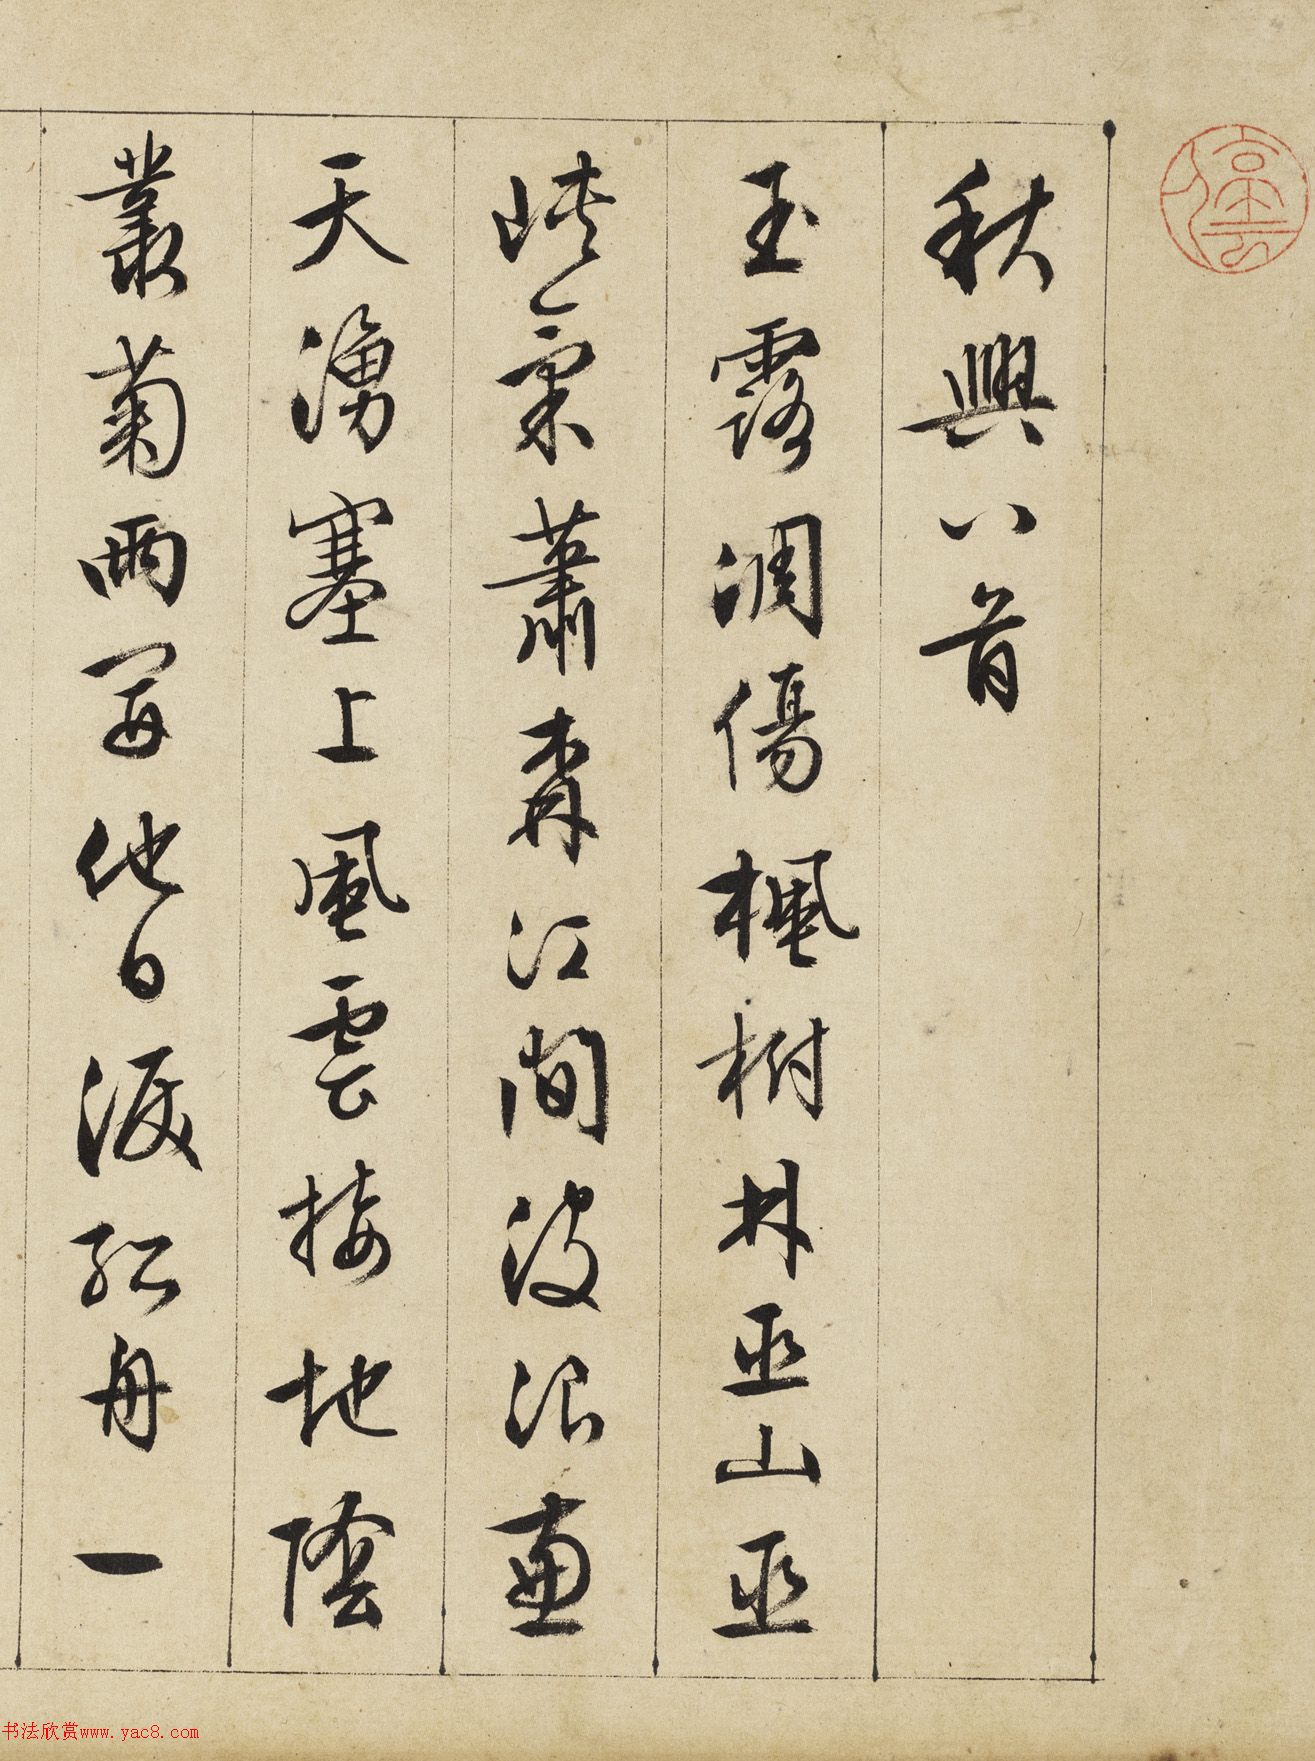 秋興八首
玉露凋傷楓樹林巫山巫
峽氣蕭森江間波浪兼
天湧塞上風雲接地陰
叢菊兩開他日淚孤舟一
书法欣赏www.yac8.com